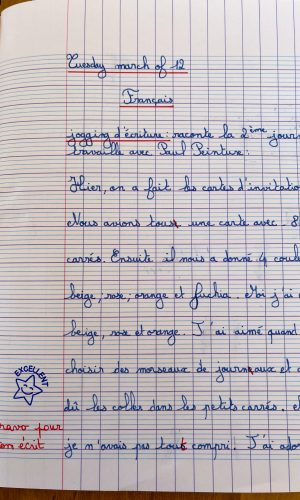 Tuesday march of 12
Français
jogging d'écriture : raconte la 2ème journ
travaillé avec Paul Peinture.
Hier, on a fait les cartes d'invitatio
Nous avions tous une carte avec 8
carrés. Ensuite il nous a donné 4 coul
beige, rose, orange et fuchia. Moi j'ai
beige, rose et orange. J'ai aimé quand
choisir des morseaux de journeaux et
EXCELLENT
dû les colles dans les petits carrés, e
ravo pour
on écrit
je n'avais pas tout compri. J'ai ador